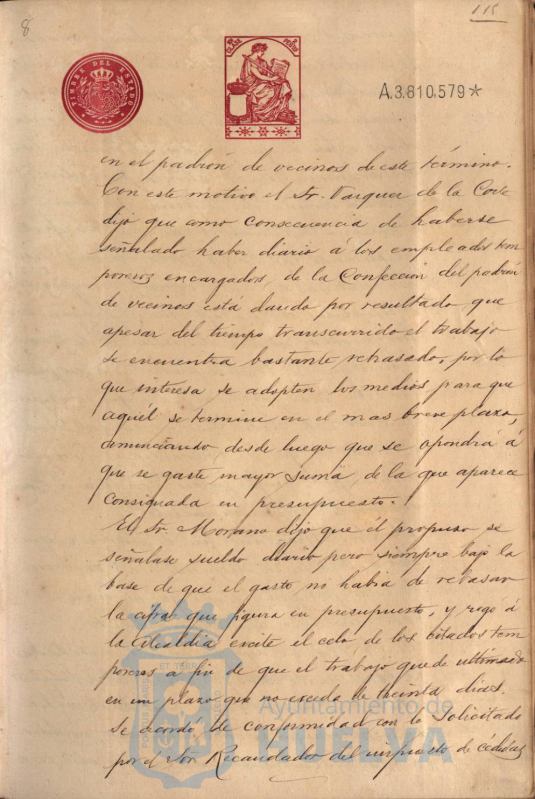 8
115
TIMBRE DEL ESTADO
CLASE
PESETAS
A.3.810.579*
en el padrón de vecinos de este término.
Con este motivo el Sr. Vazquez de la Corte
dijo que como consecuencia de haberse
señalado haber diario á los empleados tem
poreros encargados, de la Confección del padrón
de vecinos está dando por resultado que
apesar del tiempo transcurrido el trabajo
se encuentra bastante retrasado, por lo
que interesa se adopten los medios para que
aquel se termine en el mas breve plazo,
anunciando, desde luego que se opondrá á
que se gaste mayor suma, de la que aparece
consignada en presupuesto.
El Sr. Morano dijo que él propuso se
señalase sueldo diario pero siempre bajo la
base de que el gasto no habia de rebasar
la cifra que figura en presupuesto, y rogó á
la alcaldia excite el celo de los citados tem
poreros a fin de que el trabajo quede ultimado
en un plazo que no exceda de treinta dias.
Se acordó de conformidad con lo solicitado
por el Sor Recaudador del impuesto de cédulas
Ayuntamiento de
HUELVA